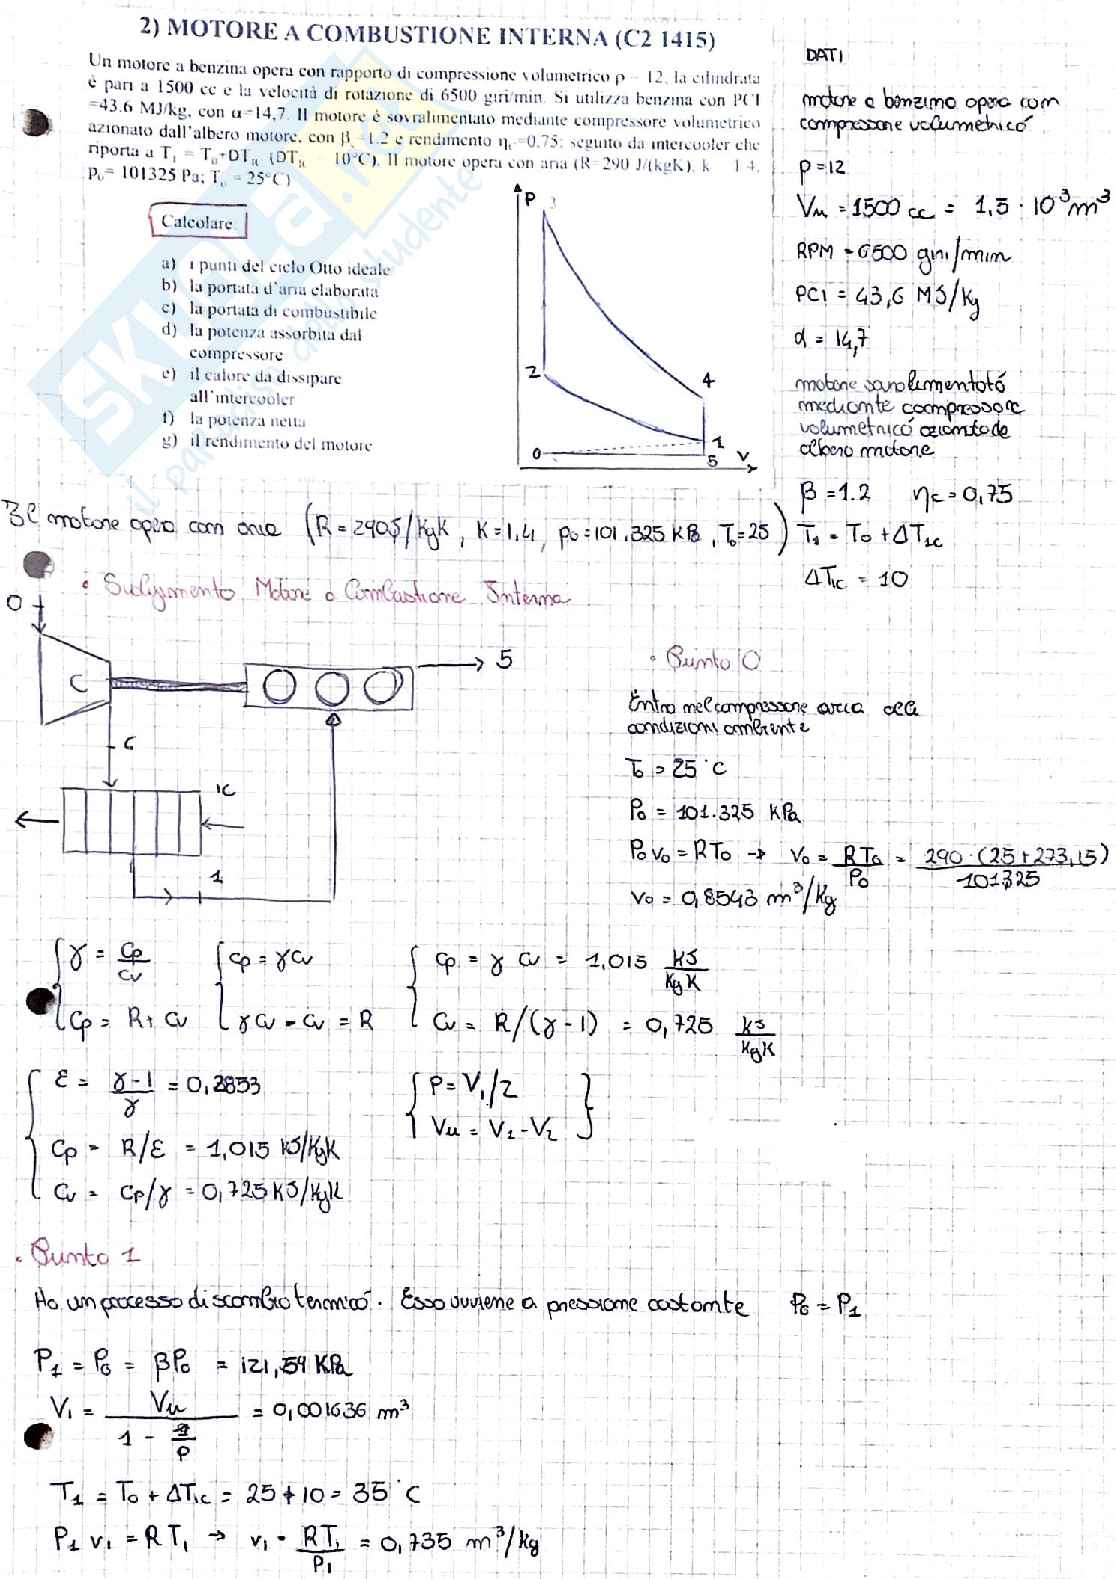 2) MOTORE A COMBUSTIONE INTERNA (C2 1415)
Un motore a benzina opera con rapporto di compressione volumetrico ρ = 12, la cilindrata
è pari a 1500 cc e la velocità di rotazione di 6500 giri/min. Si utilizza benzina con PCI
=43.6 MJ/kg, con α=14,7. Il motore è sovralimentato mediante compressore volumetrico
azionato dall'albero motore, con β =1.2 e rendimento ηc=0,75; seguito da intercooler che
riporta a T1 = To+DT (DT = 10°C). Il motore opera con aria (R=290 J/(kgK), k = 1.4,
po= 101325 Pa; To = 25°C)
Calcolare
a) i punti del ciclo Otto ideale
b) la portata d'aria elaborata
c) la portata di combustibile
d) la potenza assorbita dal
compressore
e) il calore da dissipare
all'intercooler
f) la potenza netta
g) il rendimento del motore
P
3
2
4
0
1
5
V
SKUOLA.net
il paradiso dello studente
DATI
motore a benzina opera com
compressore volumetrico
ρ=12
Vu = 1500 cc = 1,5 · 10³ m³
RPM = 6500 giri/mim
PCI = 43,6 MJ/Kg
α = 14,7
motore
mediamte compressore
volumetrico azionato da
albero motore
β = 1.2 ηc = 0,75
T1 = To + ΔTIC
ΔTIC = 10
Il motore opera com aria (R = 290J/KgK, K = 1,4, po = 101.325 KPa, To = 25)
• Svolgimento Motore a Combustione Interna
0
C
5
6
IC
1
• Punto 0
Entra nel compressore aria alle
condizioni ambiente
To = 25 °C
Po = 101.325 KPa
Po vo = RTo → vo = RTo/Po = 290 · (25+273,15)/101325
vo = 0,8543 m³/Kg
γ = Cp/Cv Cp = γCv Cp = γ Cv = 1,015 KJ/KgK
Cp = R + Cv γCv - Cv = R Cv = R/(γ-1) = 0,725 KJ/KgK
ε = γ-1/γ = 0,2853 ρ = V1/2
Cp = R/ε = 1,015 KJ/KgK Vu = V1 - V2
Cv = Cp/γ = 0,725 KJ/KgK
• Punto 1
Ho un processo di scambio termico. Esso avviene a pressione costamte P6 = P1
P1 = P6 = βPo = 121,59 KPa
V1 = Vu/1 - 1/ρ = 0,001636 m³
T1 = To + ΔTIC = 25 + 10 = 35 °C
P1 v1 = RT1 → v1 = RT1/P1 = 0,735 m³/Kg